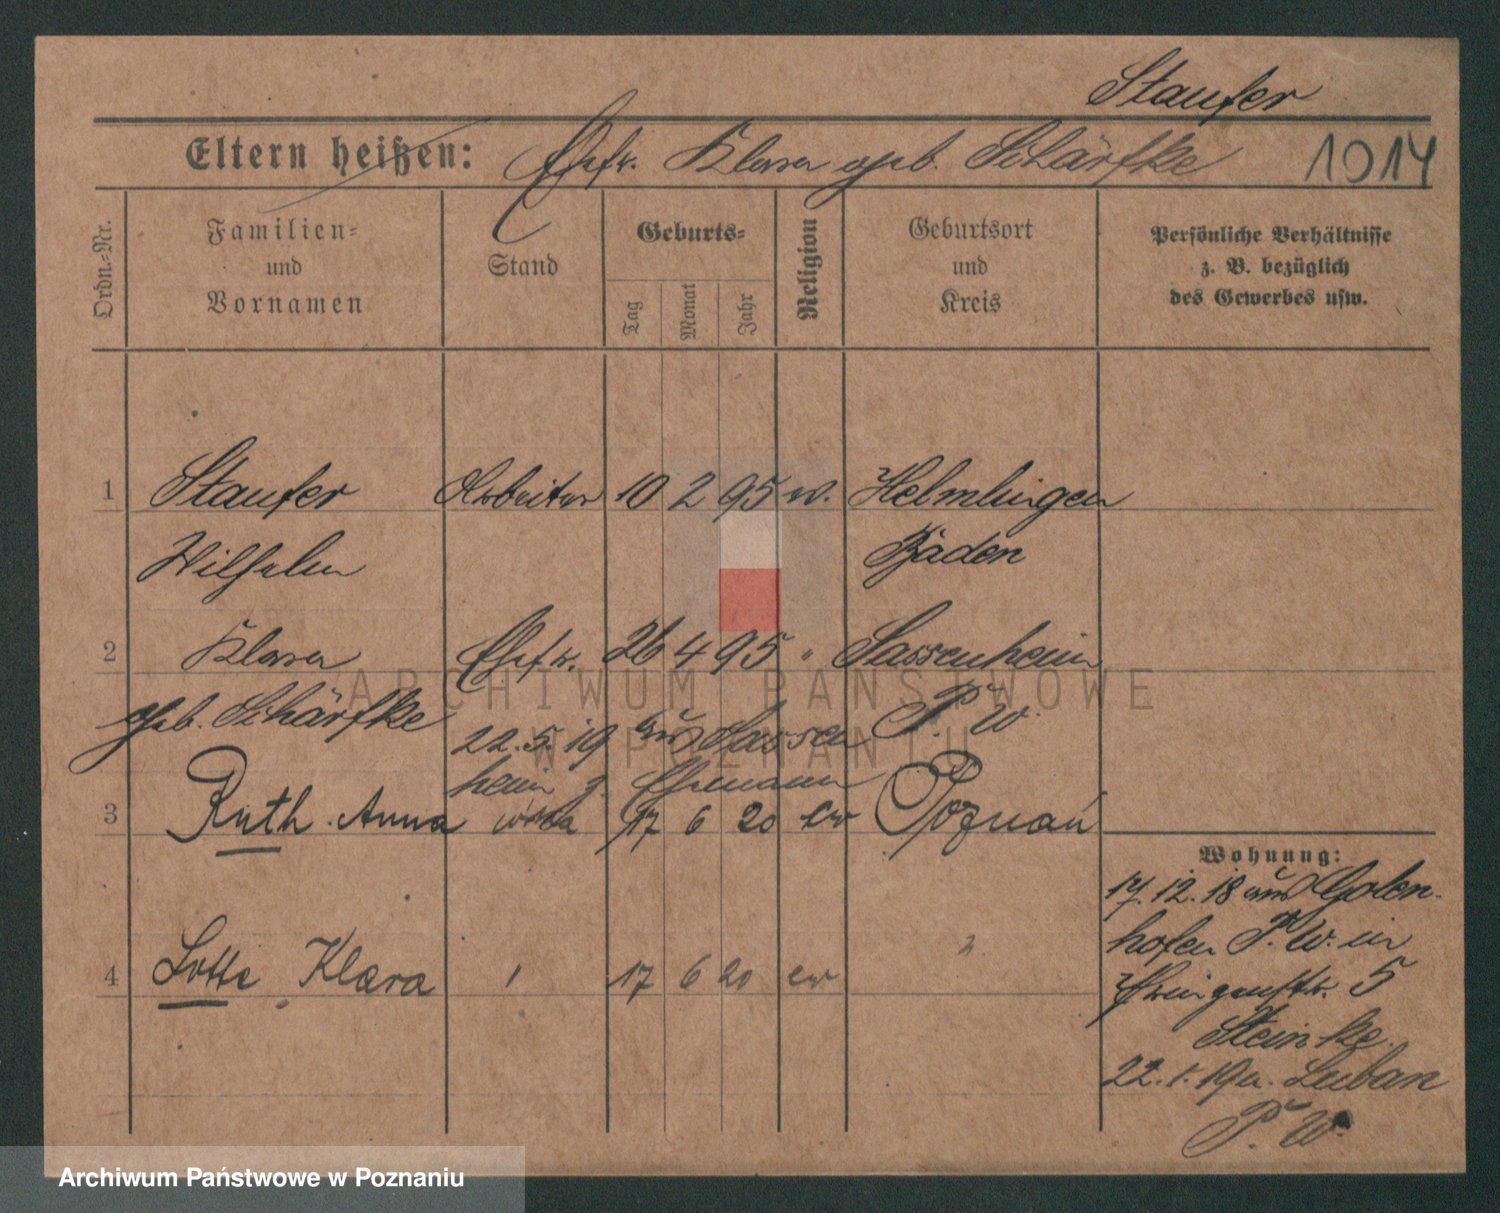 Staufer
Eltern heißen: Ehefr. Klara geb. Schärfke 1014
Ordn.-Nr.
Familien-
und
Vornamen
Stand
Geburts-
Tag
Monat
Jahr
Religion
Geburtsort
und
Kreis
Persönliche Verhältnisse
z. B. bezüglich
des Gewerbes usw.
1 Staufer Arbeiter 10 2 95 ev. Helmlingen
Wilhelm Baden
2 Klara Ehefr. 26 4 95 " Sassenheim
geb. Schärfke P. W.
22. 5. 19 aus Sassen
heim z. Ehemann
3 Ruth Anna 17 6 20 ew Poznań
4 Lotte Klara 17 6 20 ew
Wohnung:
17. 12. 18 aus Golen-
hofen P. W. in
5
Steinke.
22. 1. 19 n. Luban
P. W.
ARCHIWUM PAŃSTWOWE
W POZNANIU
Archiwum Państwowe w Poznaniu